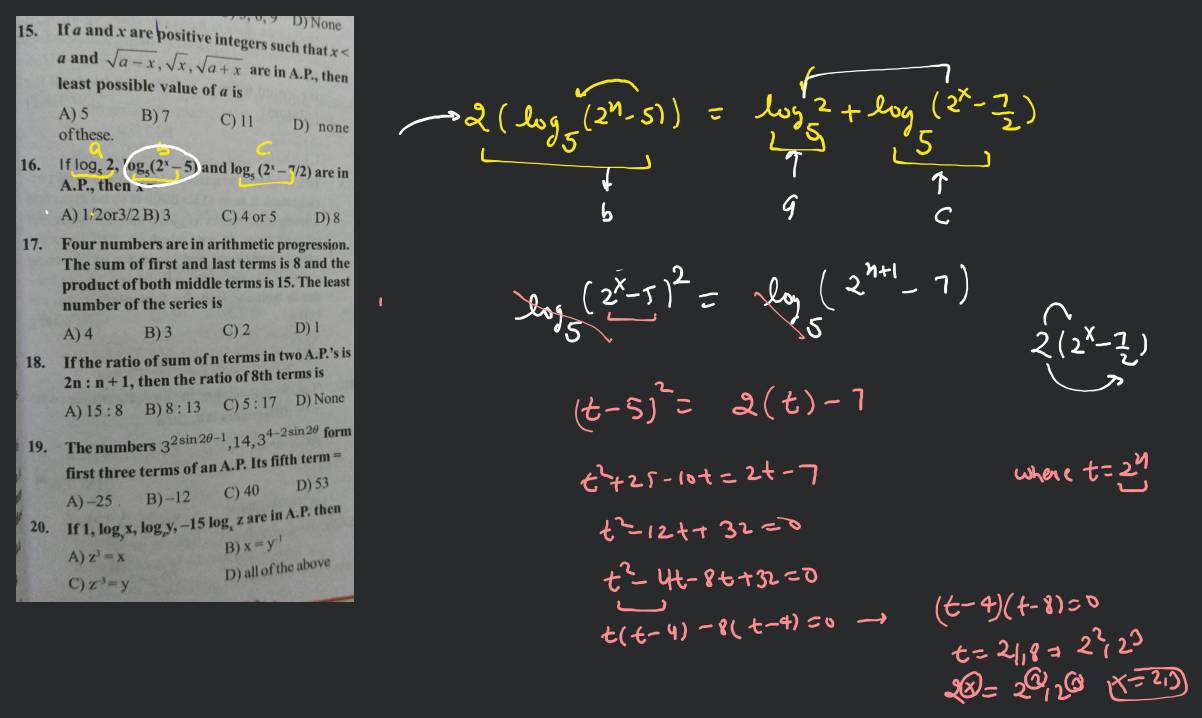 D) None
15. If a and x are positive integers such that x <
a and √a − x, √x, √a + x are in A.P., then
least possible value of a is
A) 5 B) 7 C) 11 D) none
of these.
a b c
16. If log₅ 2, log₅(2ˣ – 5) and log₅ (2ˣ – 7/2) are in
A.P., then x
A) 1·2or3/2 B) 3 C) 4 or 5 D) 8
17. Four numbers are in arithmetic progression.
The sum of first and last terms is 8 and the
product of both middle terms is 15. The least
number of the series is
A) 4 B) 3 C) 2 D) 1
18. If the ratio of sum of n terms in two A.P.'s is
2n : n + 1, then the ratio of 8th terms is
A) 15 : 8 B) 8 : 13 C) 5 : 17 D) None
19. The numbers 3^(2 sin 2θ−1), 14, 3^(4−2 sin 2θ) form
first three terms of an A.P. Its fifth term =
A) –25 B) –12 C) 40 D) 53
20. If 1, logᵧx, log y, –15 logₓ z are in A.P. then
A) z³ = x B) x = y⁻¹
C) z⁻³ = y D) all of the above
2( log₅ (2ˣ-5)) = log₅ 2 + log₅ (2ˣ - 7/2)
b a c
log₅ (2ˣ-5)² = log₅ ( 2ˣ⁺¹ - 7)
2(2ˣ-7/2)
(t-5)² = 2(t) - 7
t²+25-10t = 2t-7
where t = 2ˣ
t²-12t+32=0
t²-4t-8t+32=0
t(t-4) -8(t-4)=0 →
(t-4)(t-8)=0
t= 4,8 = 2², 2³
2ˣ = 2², 2³ x=2,3